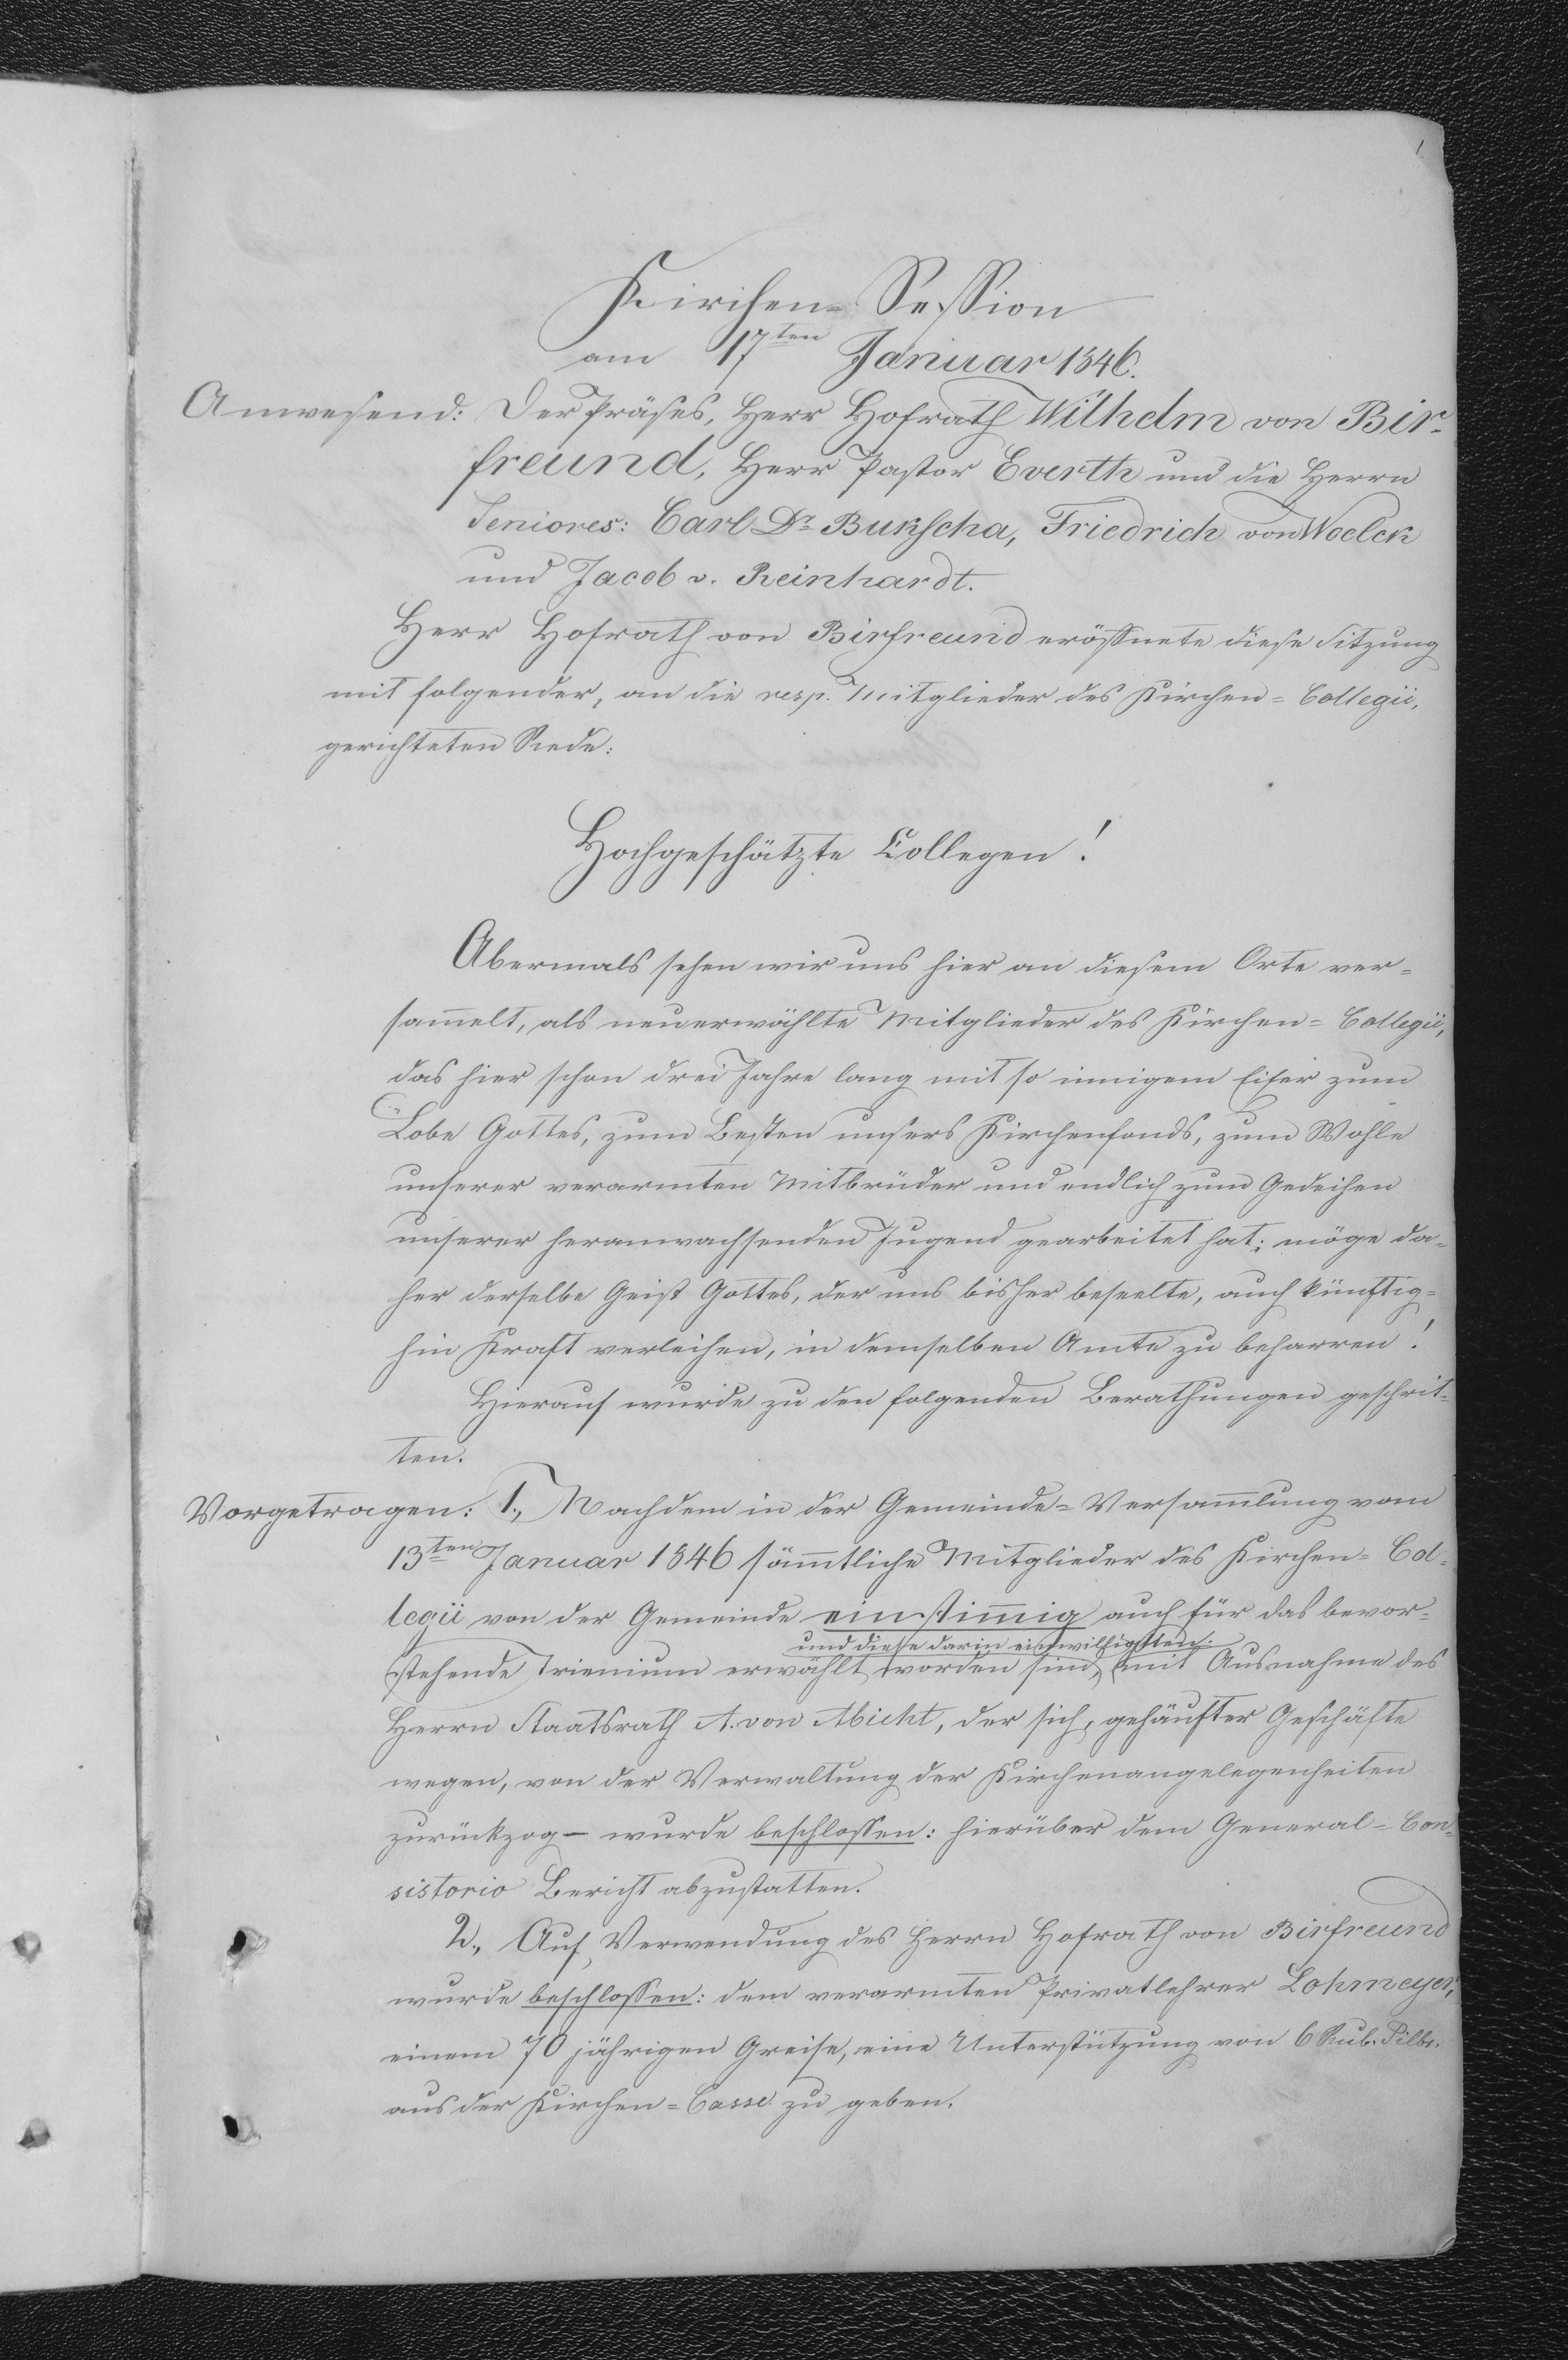 1
Kirchen-Session
am 17ten Januar 1846.
Anwesend: Der Präses, Herr Hofrath Wilhelm von Bir-
freund, Herr Pastor Everth und die Herrn
Seniores: Carl Dr Bukscha, Friedrich von Woelck
und Jacob v. Reinhardt.
Herr Hofrath von Birfreund eröffnete diese Sitzung
mit folgender, an die resp. Mitglieder des Kirchen-Collegii,
gerichteten Rede:
Hochgeschätzte Collegen!
Abermals sehen wir uns hier an diesem Orte ver-
sam̅elt, als neuerwählte Mitglieder des Kirchen-Collegii,
das hier schon drei Jahre lang mit so innigem Eifer zum
Lobe Gottes, zum Besten unsers Kirchenfonds, zum Wohle
unserer verarmten Mitbrüder und endlich zum Gedeihen
unserer heranwachsenden Jugend gearbeitet hat; möge da-
her derselbe Geist Gottes, der uns bisher beseelte, auch künftig-
hin Kraft verleihen, in demselben Amte zu beharren!
Hierauf wurde zu den folgenden Berathungen geschrit-
ten.
Vorgetragen: 1., Nachdem in der Gemeinde-Versam̅lung vom
13ten Januar 1846 säm̅tliche Mitglieder des Kirchen-Col-
legii von der Gemeinde einstim̅ig auch für das bevor-
und diese darin einwilligten:
stehende Trienium erwählt worden sind, mit Ausnahme des
Herrn Staatsrath A. von Abicht, der sich, gehäufter Geschäfte
wegen, von der Verwaltung der Kirchenangelegenheiten
zurückzog – wurde beschlossen: hierüber dem General-Con-
sistorio Bericht abzustatten.
2., Auf Verwendung des Herrn Hofrath von Birfreund
wurde beschlossen: dem verarmten Privatlehrer Lohmeyer,
einem 70 jährigen Greise, eine Unterstützung von 6 Rub. Silbr.
aus der Kirchen-Casse zu geben.